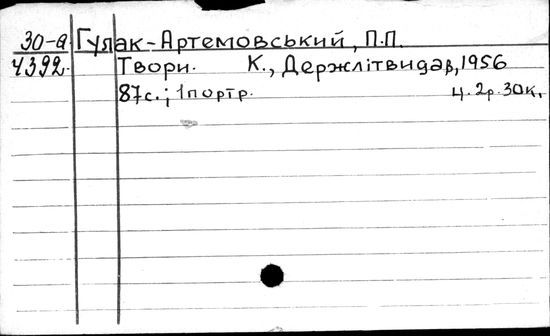 30-а Гулак-Артемовський, П.П.
4392. Твори. К., Держлітвидав, 1956
87с.; 1портр. ц. 2р. 30к.